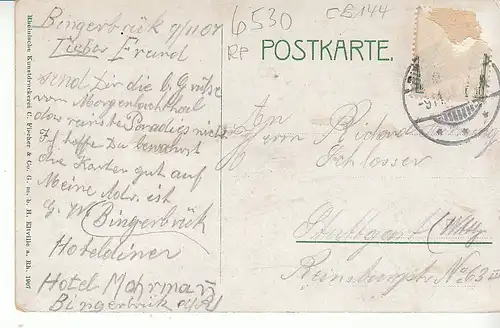 Bingerbrück 9/11 07
Lieber Freund
send Dir die b. Grüße
vom Morgenbachthal
das reinste Paradies nicht
Ich hoffe Du bewahrst
die Karten gut auf
Meine Adr. ist
G. W. Bingerbrück
Hoteldiener
Hotel Mohrman
Bingerbrück
6530
RP
CB 144
POSTKARTE.
An
Herrn Richard
Schlosser
Stuttgart (Wttg)
Reinsburgstr No 63 III
Rheinische Kunstdruckerei C. Fischer & Co. G. m. b. H. Eltville a. Rh. 1907